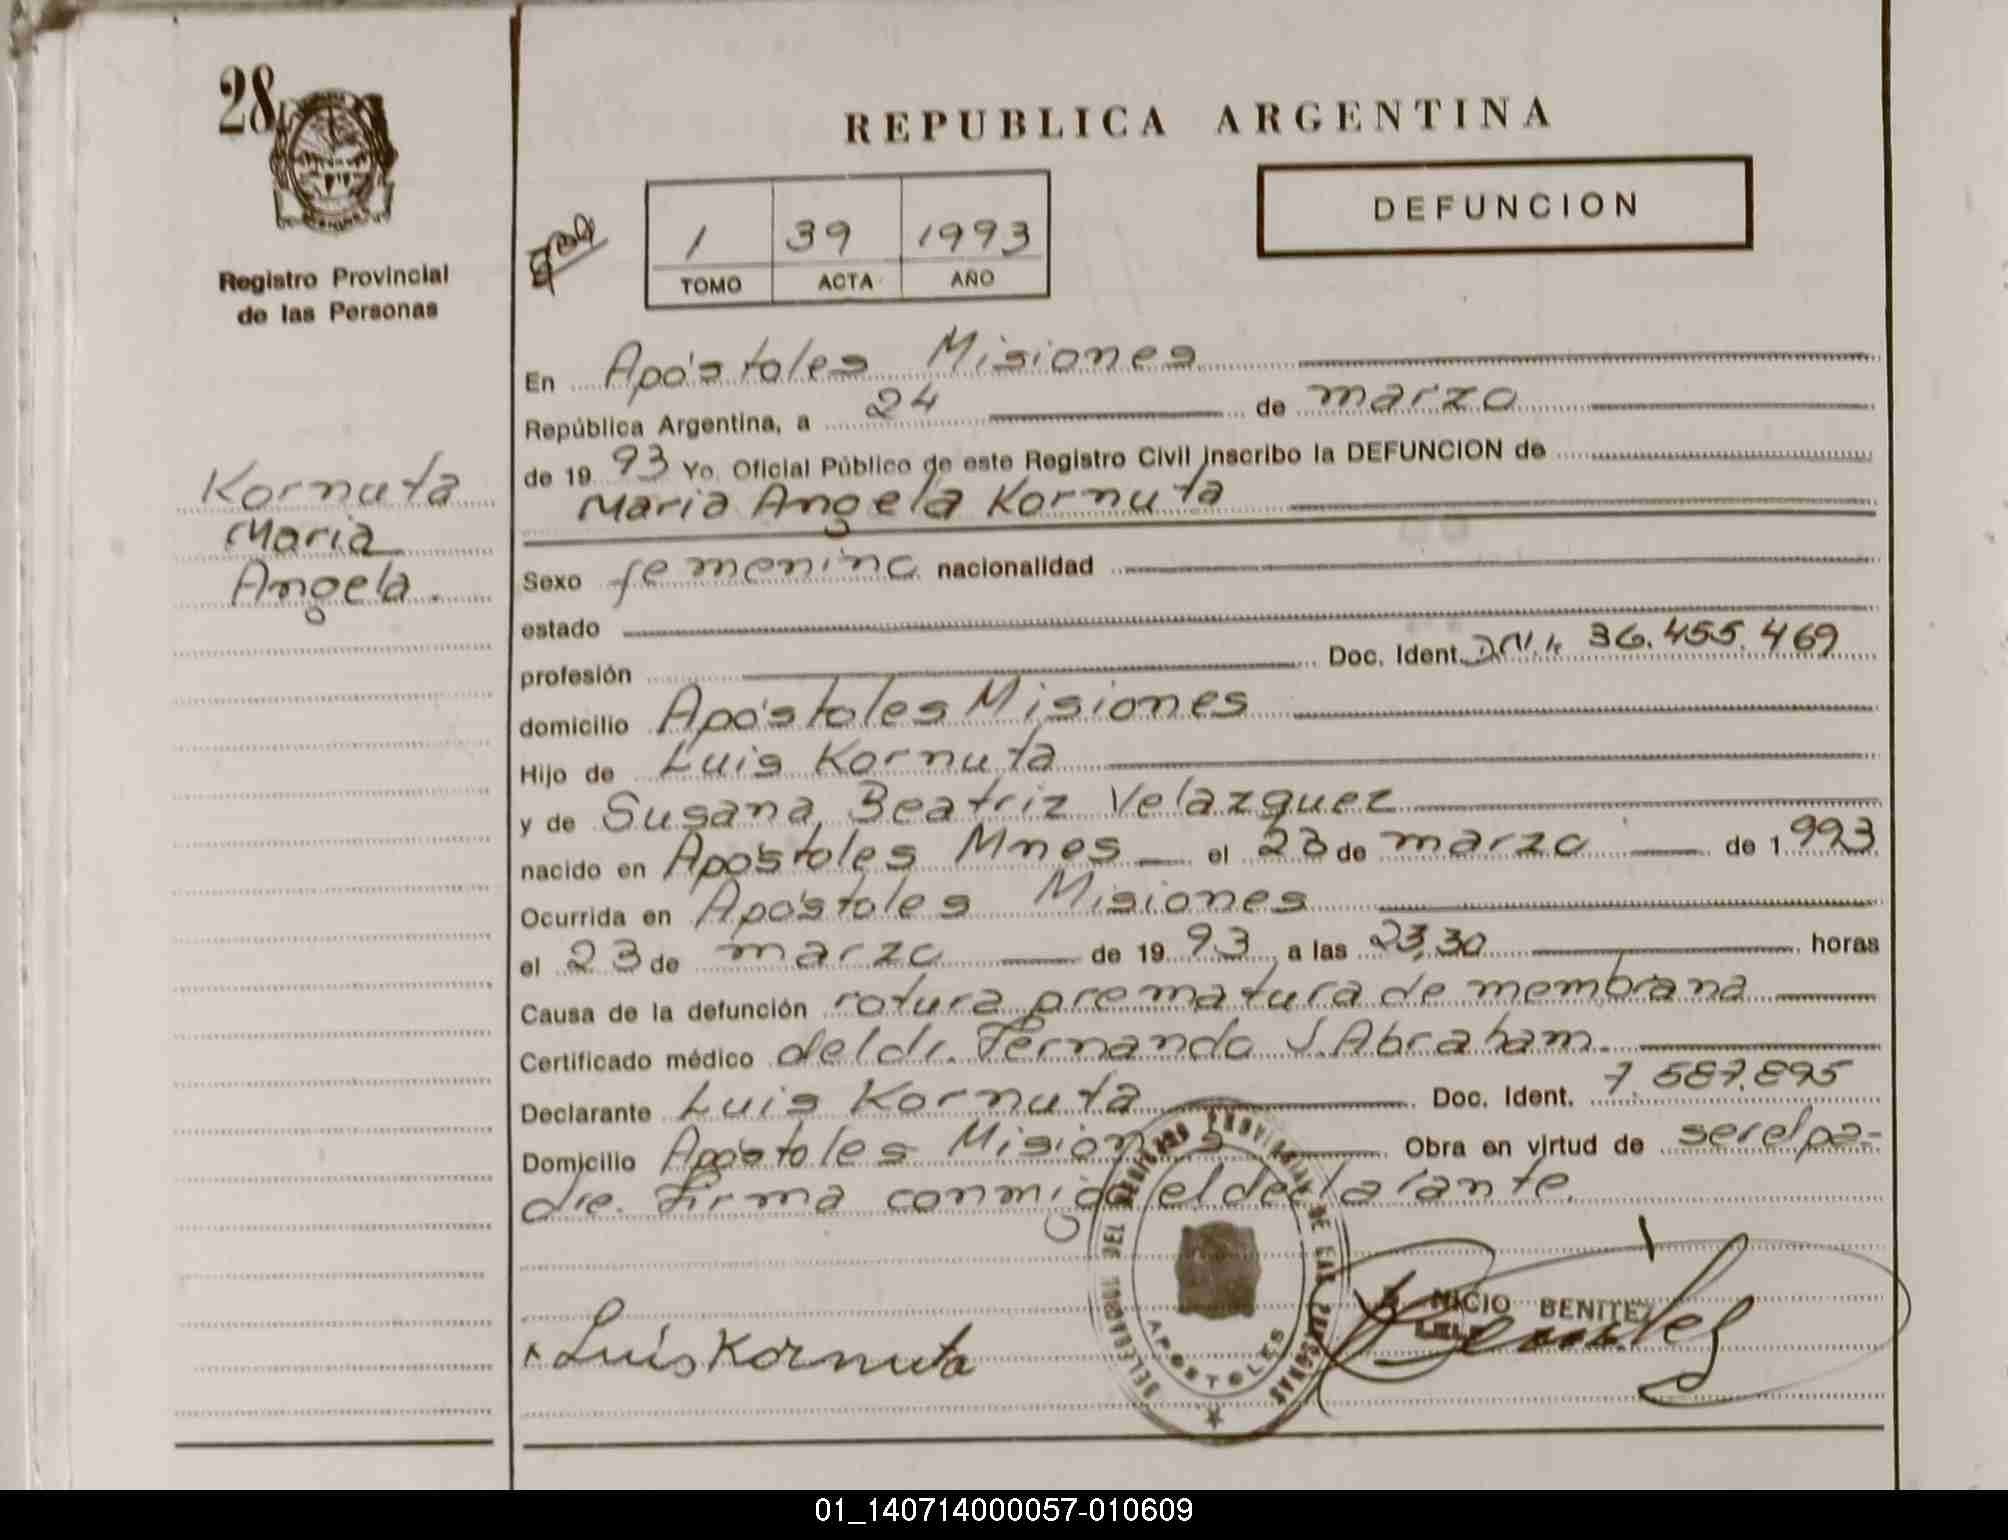 28
Registro Provincial
de las Personas
Kornuta
Maria
Angela.
REPUBLICA ARGENTINA
DEFUNCION
1 39 1993
TOMO ACTA AÑO
En Apóstoles Misiones
República Argentina, a 24 de marzo
de 19 93 Yo, Oficial Público de este Registro Civil inscribo la DEFUNCION de
Maria Angela Kornuta
Sexo femenino nacionalidad
estado
profesión Doc. Ident. D.N.I. 36.455.469
domicilio Apóstoles Misiones
Hijo de Luis Kornuta
y de Susana Beatriz Velazquez
nacido en Apóstoles Mnes el 23 de marzo de 1 993
Ocurrida en Apóstoles Misiones
el 23 de marzo de 19 93, a las 23,30 horas
Causa de la defunción rotura prematura de membrana
Certificado médico del dr. Fernando J. Abraham.
Declarante Luis Kornuta Doc. Ident. 7.587.895
Domicilio Apóstoles Misiones Obra en virtud de ser el pa-
dre. Firma conmigo el declarante.
DELEGADO DEL REGISTRO PROVINCIAL DE LAS PERSONAS
APOSTOLES
NICIO BENITEZ
Luis Kornuta
01_140714000057-010609